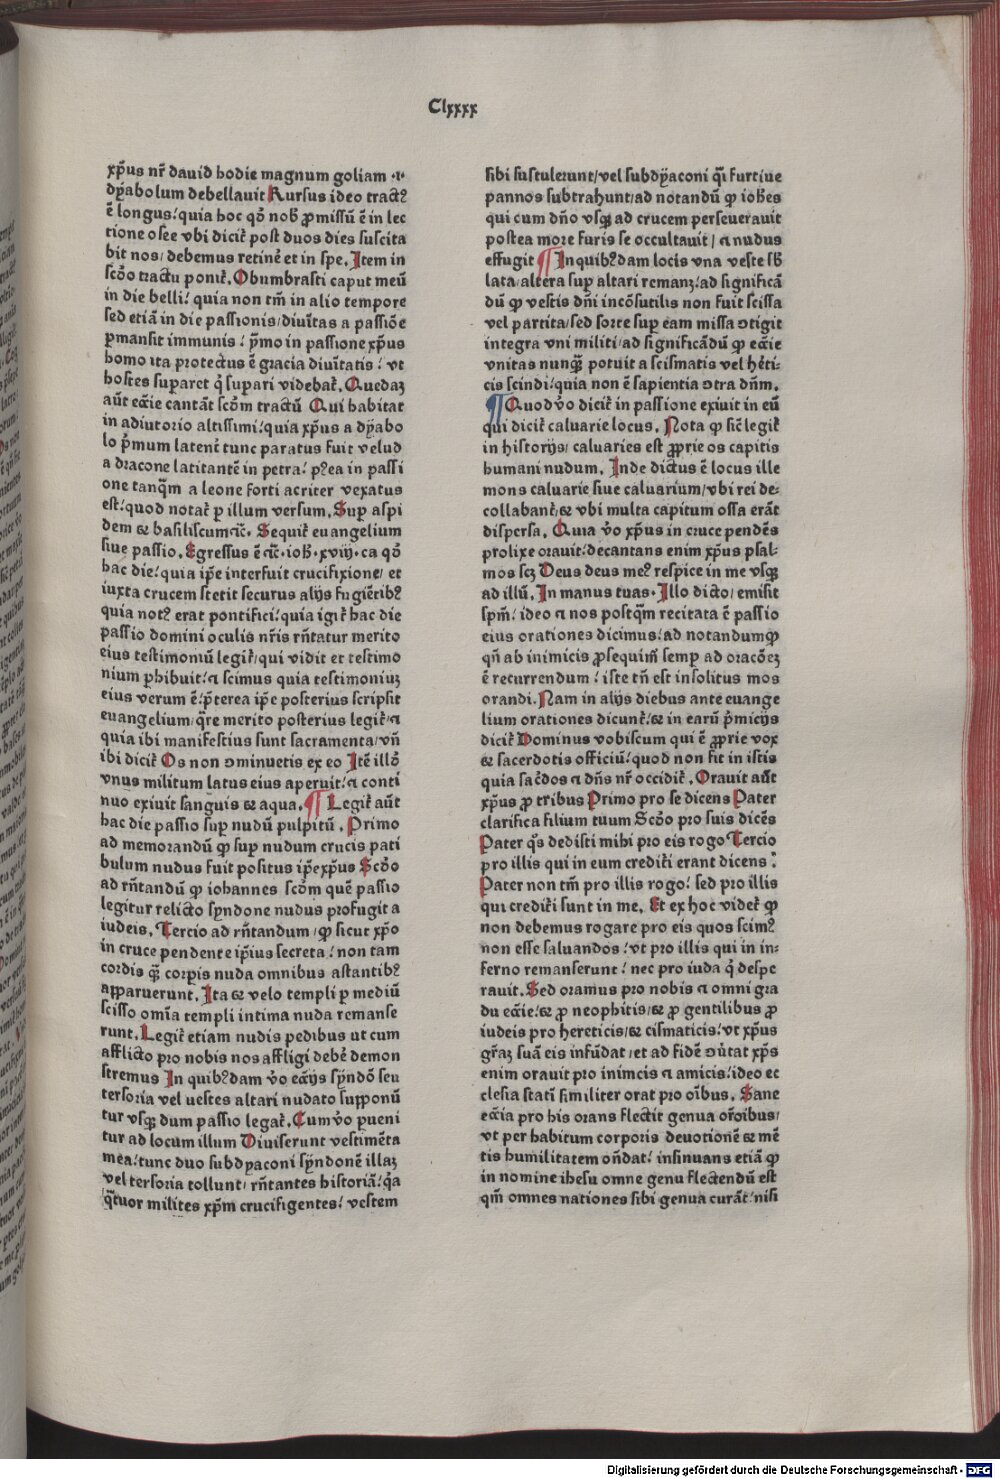 Clxxxx
xp̄us nr̄ dauid hodie magnum goliam ·i·
dyabolum debellauit Rursus ideo tractꝰ
ē longus/ quia hoc qđ nob̄ ꝓmissū ē in lec
tione osee vbi dicit̄ post duos dies suscita
bit nos/ debemus retinē et in spe. Item in
scđo tractu ponit̄. Obumbrasti caput meū
in die belli/ quia non tm̄ in alio tempore
sed etiā in die passionis/ diuītas a passiōe
ꝑmansit immunis/ pͥmo in passione xp̄us
homo ita protectus ē gracia diuītatis/ vt
hostes superet q̄ supari videbat̄. Quedaꝫ
aūt ecc̄ie cantāt scđm tractū Qui habitat
in adiutorio altissimi/ quia xp̄us a dyabo
lo pͥmum latent̄ tunc paratus fuit velud
a dracone latitantē in petra/ pꝰea in passi
one tanq̄m a leone forti acriter vexatus
est/ quod notat̄ p illum versum. Sup aspi
dem ⁊ basiliscum ⁊c̄. Sequit̄ euangelium
siue passio. Egressus ē ⁊c̄ ioh̄ xviij ca qđ
hac die/ quia ip̄e interfuit crucifixione/ et
iuxta crucem stetit securus alijs fugiētibꝰ
quia notꝰ erat pontifici/ quia igit̄ hac die
passio domini oculis nr̄is rn̄tatur merito
eius testimoniū legit̄/ qui vidit et testimo
nium ꝑhibuit/ ⁊ scimus quia testimoniuꝫ
eius verum ē/ pͥterea ip̄e posterius scripsit
euangelium/ q̄re merito posterius legit̄/ ⁊
quia ibi manifestius sunt sacramenta/ vn̄
ibi dicit̄ Os non ↄminuetis ex eo Itē illđ
vnus militum latus eius aperuit/ ⁊ conti
nuo exiuit sanguis ⁊ aqua. ¶ Legit̄ aūt
hac die passio sup nudū pulpitū. Primo
ad memorandū ꝙ sup nudum crucis pati
bulum nudus fuit positus ip̄e xp̄us Scđo
ad rn̄tandū ꝙ iohannes scđm quē passio
legitur relicto syndone nudus profugit a
iudeis. Tercio ad rn̄tandum/ ꝙ sicut xp̄o
in cruce pendente ip̄ius secreta/ non tam
cordis q̄ꝫ corpīs nuda omnibus astantibꝰ
apparuerunt. Ita ⁊ velo templi p mediū
scisso omīa templi intima nuda remanse
runt. Legit̄ etiam nudis pedibus ut cum
afflicto pro nobis nos affligi debē demon
stremus In quibꝰdam v̄o ecc̄ijs syndō seu
tersoria vel uestes altari nudato supponū
tur vsqꝫ dum passio legat̄. Cum v̄o pueni
tur ad locum illum Diuiserunt vestimēta
mea/ tunc duo subdyaconi syndonē illaꝫ
vel tersoria tollunt/ rn̄tantes historiā/ q̄a
q̄tuor milites xp̄m crucifigentes/ vestem
sibi sustulerunt/ vel subdyaconi q̄i furtiue
pannos subtrahunt/ ad notandū ꝙ ioh̄es
qui cum dn̄o vsqꝫ ad crucem perseuerauit
postea more furis se occultauit/ ⁊ nudus
effugit ¶ In quibꝰdam locis vna veste sb̄
lata/ altera sup altari remanꝫ/ ad significā
dū ꝙ vestis dn̄i incōsutilis non fuit scissa
vel partita/ sed sorte sup eam missa ↄtigit
integra vni militi/ ad significādū ꝙ ecc̄ie
vnitas nunq̄ꝫ potuit a scismatis vel hēti-
cis scindi/ quia non ē sapientia ↄtra dn̄m.
¶ Quod v̄o dicit̄ in passione exiuit in eū
qui dicit̄ caluarie locus. Nota ꝙ sic̄ legit̄
in historijs/ caluaries est ꝓprie os capitis
humani nudum. Inde dictus ē locus ille
mons caluarie siue caluarium/ vbi rei de-
collabant̄/ ⁊ vbi multa capitum ossa erāt
dispersa. Quia v̄o xp̄us in cruce pendēs
prolixe orauit/ decantans enim xp̄us psal-
mos scꝫ Deus deus meꝰ respice in me vsqꝫ
ad illū. In manus tuas. Illo dicto/ emisit
spm̄/ ideo ⁊ nos postq̄m recitata ē passio
eius orationes dicimus/ ad notandum ꝙ
qn̄ ab inimicis ꝓsequim̄ semp ad oracōeꝫ
ē recurrendum/ iste tn̄ est insolitus mos
orandi. Nam in alijs diebus ante euange
lium orationes dicunt̄/ ⁊ in earū pͥmicijs
dicit̄ Dominus vobiscum qui ē ꝓprie vox
⁊ sacerdotis officiū/ quod non fit in istis
quia sac̄dos ⁊ dn̄s nr̄ occidit̄. Orauit aūt
xp̄us ꝓ tribus Primo pro se dicens Pater
clarifica filium tuum Scđo pro suis dicēs
Pater qͦs dedisti mihi pro eis rogo Tercio
pro illis qui in eum credit̄i erant dicens/
Pater non tm̄ pro illis rogo/ sed pro illis
qui credit̄i sunt in me. Et ex hoc videt̄ ꝙ
non debemus rogare pro eis quos scimꝰ
non esse saluandos/ vt pro illis qui in in-
ferno remanserunt/ nec pro iuda q̄ despe
rauit. Sed oramus pro nobis ⁊ omni gra
du ecc̄ie/ ⁊ ꝓ neophitis/ ⁊ ꝓ gentilibus ꝓ
iudeis pro hereticis/ ⁊ cismaticis/ vt xp̄us
gr̄aꝫ suā eis infūdat/ et ad fidē ↄūtat xp̄s
enim orauit pro inimcis ⁊ amicis/ ideo ec
clesia statī similiter orat pro oībus. Sane
ecc̄ia pro his orans flectit genua or̄oibus/
vt per habitum corporis deuotionē ⁊ mē
tis humilitatem on̄dat/ insinuans etiā ꝙ
in nomine ihesu omne genu flectendū est
qm̄ omnes nationes sibi genua curāt/ nisi
Digitalisierung gefördert durch die Deutsche Forschungsgemeinschaft - DFG